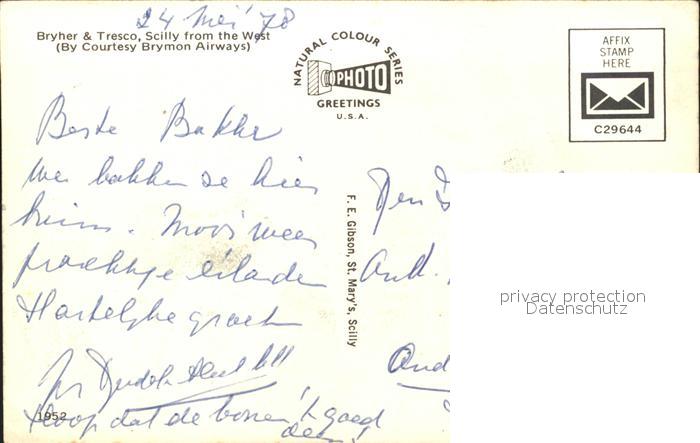 24 Mei '78
Bryher & Tresco, Scilly from the West
(By Courtesy Brymon Airways)
NATURAL COLOUR SERIES
PHOTO
GREETINGS
U.S.A.
AFFIX
STAMP
HERE
C29644
Beste Bakker
We bakken ze hier
bruin. Mooi weer
prachtige eilanden
Hartelijke groeten
1952
Hoop dat de bonen 't goed
doen!
F. E. Gibson, St. Mary's, Scilly
Den
privacy protection
Datenschutz